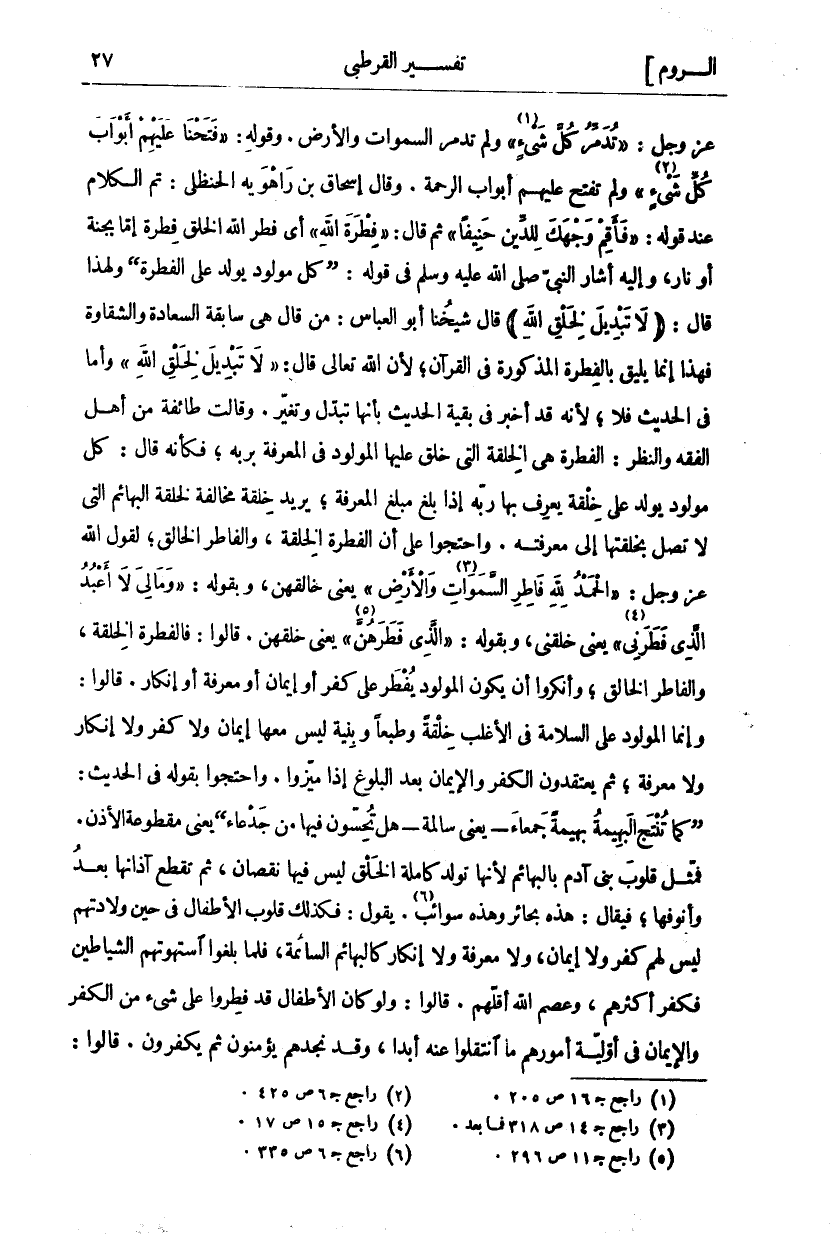 الـــروم] تفســـير القرطبى ٢٧
عز وجل : «تُدَمِّرُ كُلَّ شَىْءٍ(١)» ولم تدمر السموات والأرض . وقوله : «فَتَحْنَا عَلَيْهِمْ أَبْوَابَ
كُلِّ شَىْءٍ(٢)» ولم تفتح عليهم أبواب الرحمة . وقال إسحاق بن رَاهْوَيه الحنظلى : تم الكلام
عند قوله : «فَأَقِمْ وَجْهَكَ لِلدِّينِ حَنِيفًا» ثم قال : «فِطْرَةَ اللهِ» أى فطر الله الخلق فِطرة إمّا بجنة
أو نار، وإليه أشار النبىّ صلى الله عليه وسلم فى قوله : ”كل مولود يولد على الفطرة“ ولهذا
قال : ﴿ لَا تَبْدِيلَ لِخَلْقِ اللهِ ﴾ قال شيخُنا أبو العباس : من قال هى سابقة السعادة والشقاوة
فهذا إنما يليق بالفِطرة المذكورة فى القرآن؛ لأن الله تعالى قال : «لَا تَبْدِيلَ لِخَلْقِ اللهِ» وأما
فى الحديث فلا ؛ لأنه قد أخبر فى بقية الحديث بأنها تبدّل وتغيّر . وقالت طائفة من أهــل
الفقه والنظر : الفطرة هى الخِلقة التى خلق عليها المولود فى المعرفة بربه ؛ فكأنه قال : كل
مولود يولد على خِلْقة يعرِف بها ربّه إذا بلغ مبلغ المعرفة ؛ يريد خِلقة مخالفة لخلقة البهائم التى
لا تصل بخلقتها إلى معرفتــه . واحتجوا على أن الفطرة الخِلقة ، والفاطر الخالق ؛ لقول الله
عز وجل : «الْحَمْدُ لِلهِ فَاطِرِ السَّمَوَاتِ وَالْأَرْضِ(٣)» يعنى خالقهن ، وبقوله : «وَمَالِىَ لَا أَعْبُدُ
الَّذِى فَطَرَنِى(٤)» يعنى خلقنى ، وبقوله : «الَّذِى فَطَرَهُنَّ(٥)» يعنى خلقهن . قالوا : فالفطرة الخِلقة ،
والفاطر الخالق ؛ وأنكروا أن يكون المولود يُفْطَر على كفر أو إيمان أو معرفة أو إنكار . قالوا :
وإنما المولود على السلامة فى الأغلب خِلْقةً وطبعاً وبِنية ليس معها إيمان ولا كفر ولا إنكار
ولا معرفة ؛ ثم يعتقدون الكفر والإيمان بعد البلوغ إذا ميّزوا . واحتجوا بقوله فى الحديث :
”كما تُنْتَج البَهِيمةُ بهيمةً جَمعاءَ — يعنى سالمة — هل تُحِسّون فيها من جَدْعاء“ يعنى مقطوعة الأذن .
فمثّــل قلوبَ بنى آدم بالبهائم لأنها تولد كاملة الخَلْق ليس فيها نقصان ، ثم تقطع آذانها بعــدُ
وأنوفها ؛ فيقال : هذه بحائر وهذه سوائب(٦) . يقول : فكذلك قلوب الأطفال فى حين ولادتهم
ليس لهم كفر ولا إيمان، ولا معرفة ولا إنكار كالبهائم السائمة ، فلما بلغوا ٱستهوتهم الشياطين
فكفر أكثرهم ، وعصم الله أقلّهم . قالوا : ولو كان الأطفال قد فطِروا على شىء من الكفر
والإيمان فى أوّليّــة أمورهم ما ٱنتقلوا عنه أبدا ، وقــد نجدهم يؤمنون ثم يكفرون . قالوا :
(١) راجع جـ ١٦ ص ٢٠٥ . (٢) راجع جـ ٦ ص ٤٢٥ .
(٣) راجع جـ ١٤ ص ٣١٨ فــا بعد . (٤) راجع جـ ١٥ ص ١٧ .
(٥) راجع جـ ١١ ص ٢٩٦ . (٦) راجع جـ ٦ ص ٣٣٥ .